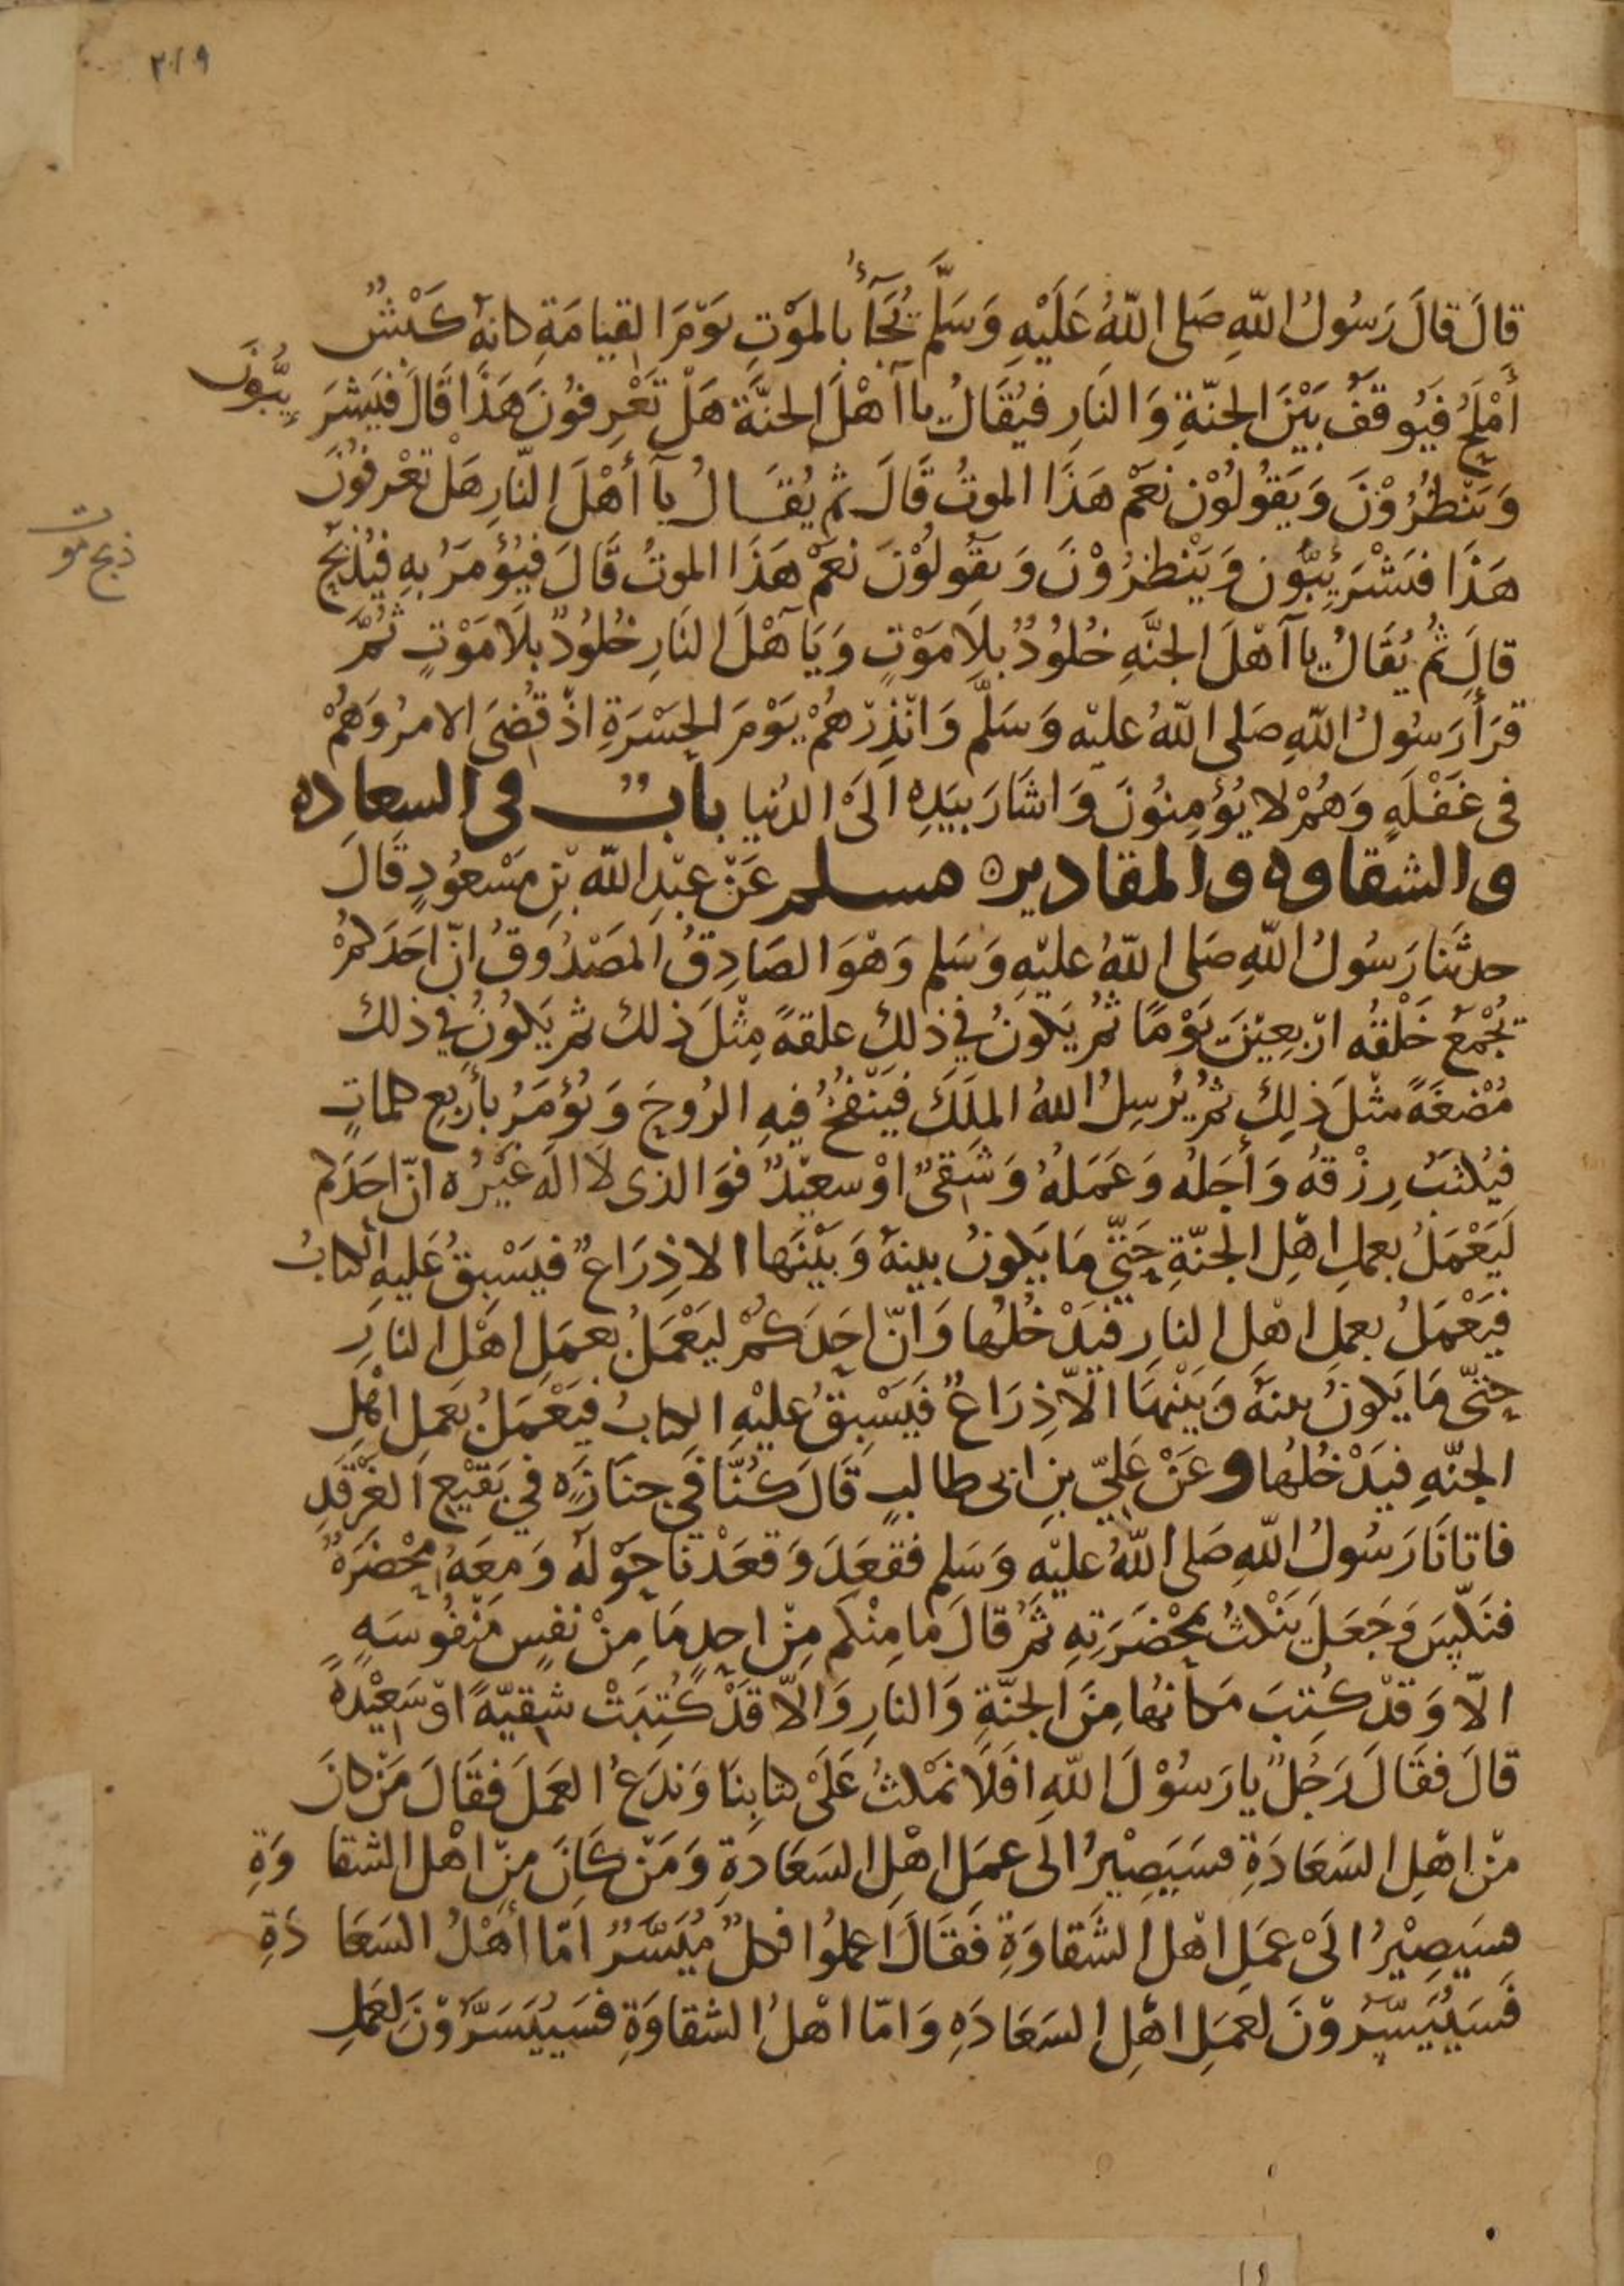 ٢١٩
قالَ قالَ رَسُولُ اللّهِ صَلى اللّهُ عَلَيْهِ وَسَلَّم تُجَآءُ بالمَوْتِ يَوْمَ القِيَامَةِ كانهُ كَبْشٌ
أَمْلَحُ فيُوقَفُ بَيْنَ الجنّةِ وَالنَارِ فيُقَالُ يا آهْلَ الجنَّة هَلْ تَعْرِفُونَ هَذَا قَالَ فيَشْرَ يِبُّونَ
وَيَنْظُرُوْنَ وَيَقُولُوْن نعَمْ هَذَا الموتُ قَالَ ثم يُقَالُ يآ أهْلَ النّارِ هَلْ تَعْرفُونَ
ذبح موت
هَذَا فيَشْرَيِبُّون وَيَنْظرُوْنَ وَيقولُوْنَ نعَمْ هَذَا الموتُ قَالَ فيُؤمَرُ بهِ فيُذْبَحُ
قالَ ثُم يُقَالُ يا آهْلَ الجنَّهِ خُلُودٌ بلِاَ مَوْتٍ وَيَآ هْلَ النَارِ خُلُودٌ بلَا مَوْتٍ ثُمَّ
قرَأ رَسُولُ اللّهِ صَلى اللّهُ عليْه وَسَلَّم وَانْذِرْهُمْ يَوْمَ الحَسْرَةِ اذْ قُضىَ الامرُ وَهُمْ
فى غَفْلَهٍ وَهُمْ لا يُؤمِنُونَ وَاشَارَ بيَدِهِ الَىْ الدُنيا بابٌ فى السعاده
والشقاوه والمقاديره مسلم عَنْ عبْدِ اللّه بْنِ مَسْعُودٍ قَالَ
حدثنا رَسُولُ اللّهِ صَلى اللّهُ عليْهِ وَسَلم وَهْوَ الصَادِقُ المَصْدُوقُ انّ احَدَكمْ
يُجْمَعُ خَلْقُه ارْبعِيْنَ يَوْمًا ثمُ يَكونُ في ذلكِ علقهً مِثْلَ ذلك ثم يَكونُ في ذلك
مُضْغَةً مثْلَ ذلِكَ ثمُ يُرْسِلُ اللهُ الملَكَ فيَنْفُخُ فيهِ الرُوحَ وَيُؤمَرُ بأربَعِ كلماتٍ
فيُكْتَبُ رِزْقهُ وَأجَلُه وَعَمَلهُ وَشَقىٌ اوْ سعيْدٌ فوَالذى لَا الَه غيْرُه انّ احَدَكم
لَيَعْمَلُ بعملِ اهْلِ الجنّةِ حَتّى مَا يَكونُ بينهُ وَبَيْنَها الا ذِرَاعٌ فيَسْبِقُ عَليْهِ الكتابُ
فيَعْمَلُ بعمل اهْل النارِ فيَدْخُلُها وَانّ احَدَكمْ ليَعْمَلُ بعمَلِ اهْلِ النارِ
حَتّى مَا يَكونُ بينهُ وَبَيْنَهَا الّا ذِرَاعٌ فَيَسْبِقُ عليْهِ الكتابُ فيَعْمَلُ بعَملِ اهْلِ
الجنّهِ فيَدْخُلُها وعَنْ عَليّ بنِ ابى طالبٍ قَالَ كُنّا في جنَازَه في بَقيْعِ الغَرْقَدِ
فاتانَا رَسُولُ اللّهِ صَلى اللّهُ عليْهِ وَسَلم فقعَدَ وَقعَدْنا حَوْلَهُ وَمعَهُ مخْضَرَهٌ
فنَكّسَ وَجَعَلَ يَنْكثُ بمخْضَرَتِهِ ثمُ قالَ مَا مِنْكم مِنْ احدٍ مَا مِنْ نفسٍ مَنْفُوسَهٍ
الّا وَقدْ كُتِبَ مَكانهُا مِنَ الجنّةِ وَالنارِ وَالّا قَدْ كُتِبَتْ شقيّهً اوْ سَعِيْدَهً
قالَ فقَالَ رَجُلٌ يا رَسُوْلَ اللّهِ افَلَا نمَكثُ عَلَىْ كتابِنَا وَندَعُ العَمَلَ فقَالَ مَنْ كانَ
منْ اهْلِ السَعَادَةِ فسَيَصِيْرُ الَى عمَلِ اهْلِ السَعَادَةِ وَمَنْ كَانَ مِنْ اهْلِ الشقا وَةِ
فسَيَصِيْرُ الَىْ عمَلِ اهْل الشَقاوَةِ فَقَالَ اعملوُا فكلٌ مُيَسَّرٌ امّا أهْلُ السَعَا دَةِ
فسَيُيَسّرُوْنَ لعمَلِ اهْلِ السَعَادَهِ وَامّا اهْلُ الشقاوَةِ فسَيُيَسَرُّوْنَ لعَملِ